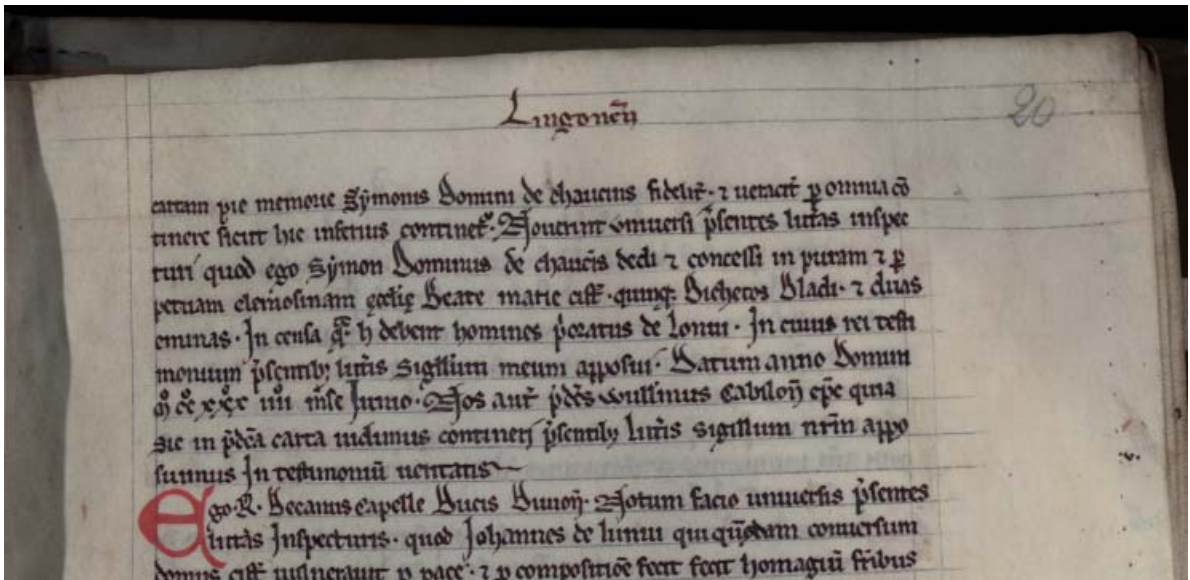 Lingoneñ
20
cartam pie memorie Symonis Domini de chaucins fidelit̉. ⁊ ueracit̉ ꝑ omnia cō
tinere sicut hic inferius continet᷑. Nouerint vniuersi p̃sentes litt̉as inspec
turi quod ego Symon Dominus de chauc̉is dedi ⁊ concessi in puram ⁊ ꝑ
petuam elemosinam ecclie Beate marie cist̉. quinq; Bichetos Bladi. ⁊ duas
eminas. In censa q̃ h debent homines p̉oratus de lonui. In cuius rei testi
monium p̃sentib; litt̉is Sigillum meum apposui. Datum anno Domini
mͦ ccͦ xxͦxͦ iiii mͤse Junio. Nos aut̃ p̃dc̃s Willimus Cabiloñ ep̃c quia
sic in p̃dc̃a carta uidimus contineri p̃sentib; litt̉is Sigillum nr̃m appo
suimus In testimoniū ueritatis
Ego. R. Decanus Capelle Ducis Diuioñ. Notum facio uniuersis p̃sentes
litt̉as Inspecturis. quod Johannes de luniu qui q̃ndam conuersum
domus cist̉ uulnerauit ꝓ pace. ⁊ ꝓ compositiōe fecit fecit homagiū fr̃ibus